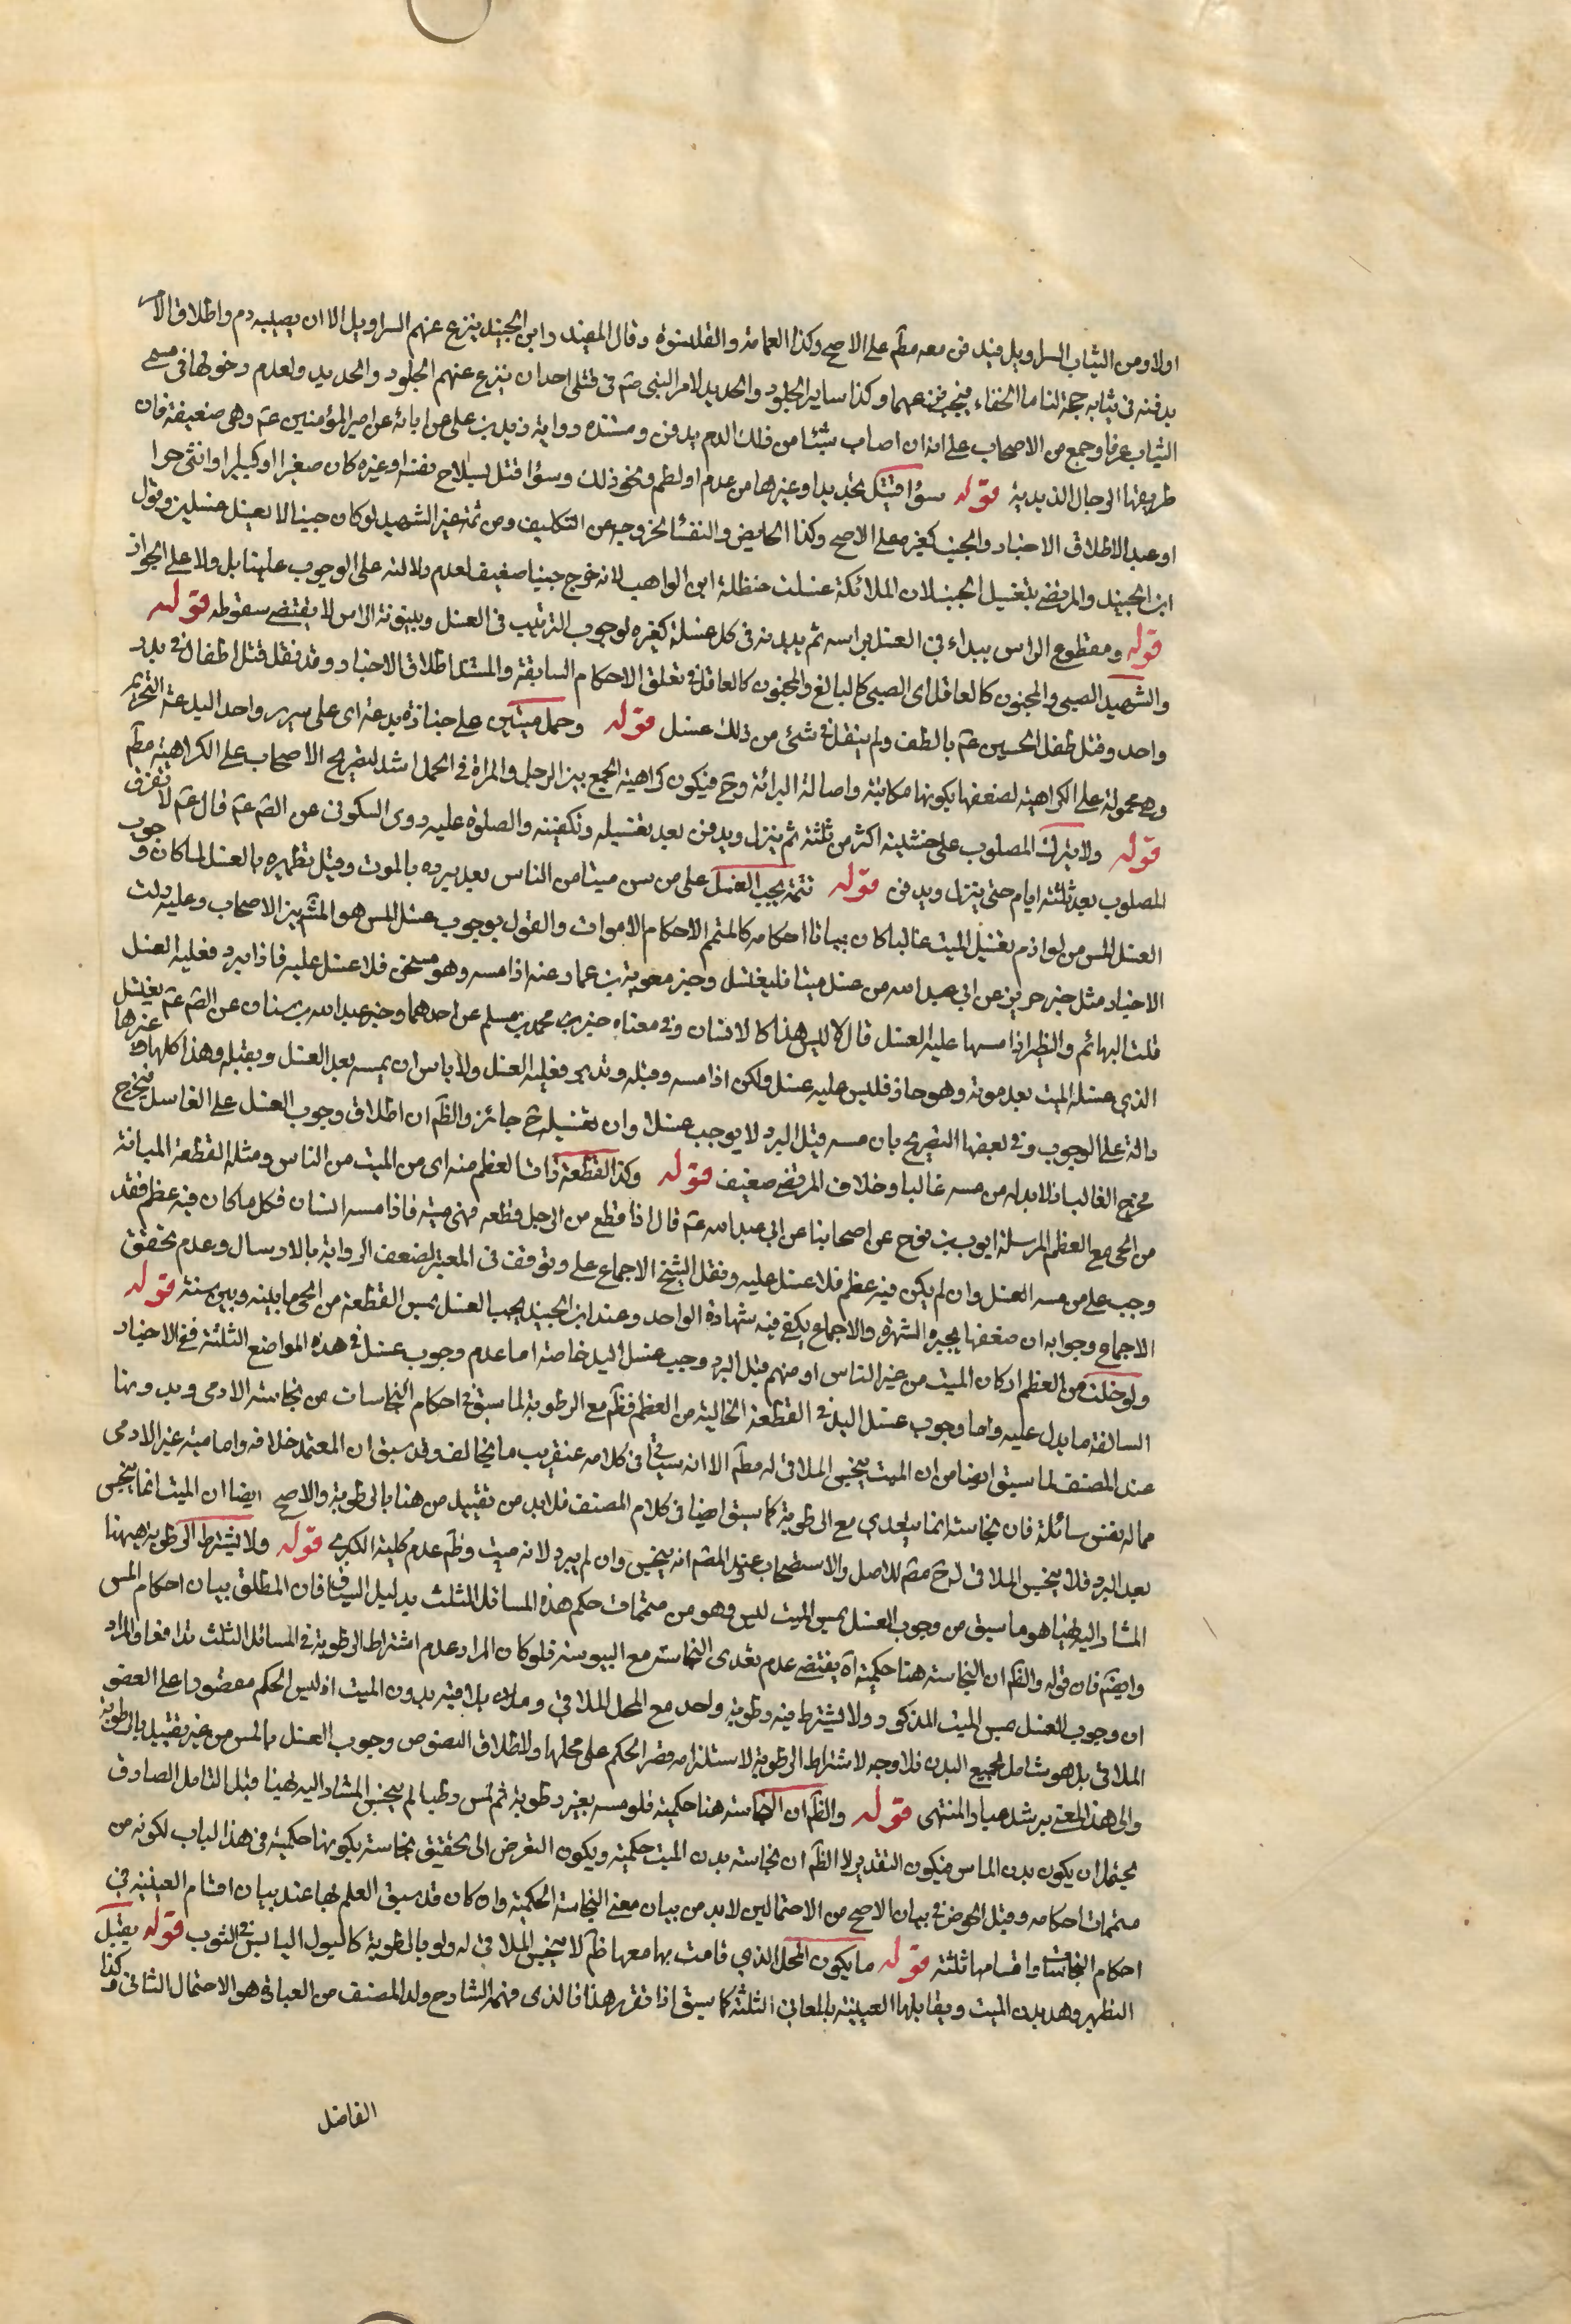 اولا ومن الثياب السراويل فيدفن معه مطم على الاصح وكذا العمامة والقلنسوة وقال المفيد وابن الجنيد ينزع عنهم السراويل الا ان يصيبه دم واطلاق الامر
بدفنه في ثيابه حجة لنا ما الخفاء فيجب نزعهما وكذا ساير الجلود والحديد لامر النبي صم في قتلى احد ان ينزع عنهم الجلود والحديد ولعدم دخولها في مسمى
الثياب عرفا وجمع من الاصحاب على انه ان اصاب شيئا من ذلك الدم يدفن ومستنده رواية زيد بن علي عن ابائه عن امير المؤمنين عم وهي ضعيفة فان
طريقها الرجال الزيدية قوله سواء قتل بحديد او غيرها من عدم او لطم ونحو ذلك وسواء قتل بسلاح نفسه او غيره كان صغيرا او كبيرا او انثى حرا
او عبد الاطلاق الاخبار والجنب كغيره على الاصح وكذا الحايض والنفساء لخروجه عن التكليف ومن ثمة غير الشهيد لو كان جنبا لا يغسل غسلين وقول
ابن الجنيد والمرتضى بتغسيل الجنب لان الملائكة غسلت حنظلة ابن الواهب لانه خرج جنبا ضعيف لعدم دلالته على الوجوب علينا بل ولا على الجواز
قوله ومقطوع الراس يبداء في الغسل براسه ثم ببدنه في كل غسلة كغيره لوجوب الترتيب في الغسل وبينونة الراس لا يقتضي سقوطه قوله
والشهيد الصبي والمجنون كالعاقل اى الصبي كالبالغ والمجنون كالعاقل في تعلق الاحكام السابقة والمستند اطلاق الاخبار وقد نقل قتل اطفال في بدر
واحد وقتل طفل الحسين عم بالطف ولم ينقل في شئ من ذلك غسل قوله وحمل ميتين على جنازة بدعة اى على سرير واحد البدعة التحريم
وهي محمولة على الكراهية لضعفها بكونها مكاتبة واصالة البرائة وح فيكون كراهية الجمع بين الرجل والمراة في الحمل اشد لتصريح الاصحاب على الكراهية مطم
قوله ولا يترك المصلوب على خشبته اكثر من ثلثة ثم ينزل ويدفن بعد تغسيله وتكفينه والصلوة عليه روى السكوني عن الصم عم قال عم لا تفرق
المصلوب بعد ثلثة ايام حتى ينزل ويدفن قوله تتمة يجب الغسل على من مس ميتا من الناس بعد برده بالموت وقبل تطهيره بالغسل لما كان وجوب
الغسل المس من لوازم تغسيل الميت غالبا كان بيانا احكامه كالمتمم الاحكام الاموات والقول بوجوب غسل المس هو المشم بين الاصحاب وعليه دلت
الاخبار مثل خبر حريز عن ابي عبد الله من غسل ميتا فليغتسل وخبر معوية بن عمار عنه اذا مسه وهو سخن فلا غسل عليه فاذا برد فعليه الغسل
قلت البهائم والطير اذا مسها عليه الغسل قال لا ليس هذا كالانسان وفي معناه خبرى محمد بن مسلم عن احدهما وخبر عبد الله بن سنان عن الصم عم يغتسل
الذي غسله الميت بعد موته وهو حار فليس عليه غسل ولكن اذا مسه وقبله وقد برد فعليه الغسل ولا باس ان يمسه بعد الغسل ويقبله وهذا كلها وغيرها
دالة على الوجوب وفي بعضها التصريح بان مسه قبل البرد لا يوجب غسلا وان تغسيله ح جائز والظم ان اطلاق وجوب الغسل على الغاسل فيخرج
مخرج الغالب اذ لابد له من مسه غالبا وخلاف المرتضى ضعيف قوله وكذا القطعة ذات العظم منه اى من الميت من الناس ومثله القطعة المبانة
من الحي مع العظم المرسلة ايوب بن نوح عن اصحابنا عن ابي عبد الله عم قال اذا قطع من الرجل قطعة فهى ميتة فاذا مسه انسان فكل ما كان فيه عظم فقد
وجب على من مسه الغسل وان لم يكن فيه عظم فلا غسل عليه ونقل الشيخ الاجماع على وتوقف في المعتبر لضعف الرواية بالارسال وعدم تحقق
الاجماع وجوابه ان ضعفها يجبره الشهرة والاجماع يكفي فيه شهادة الواحد وعند ابن الجنيد يجب الغسل بمس القطعة من الحي ما بينه وبين سنة قوله
ولو خلت من العظم او كان الميت من غير الناس او منهم قبل البرد وجب غسل اليد خاصة اما عدم وجوب غسل في هذه المواضع الثلثة ففي الاخبار
السالفة ما يدل عليه واما وجوب غسل اليد في القطعة الخالية من العظم فظم مع الرطوبة لما سبق في احكام النجاسات من نجاسة الادمى وبدونها
عند المصنف لما سبق ايضا من ان الميت ينجس الملاقى له مطم الا انه سياتي في كلامه عنقريب ما يخالف وقد سبق ان المعتمد خلافه واما ميتة غير الادمى
مما له نفس سائلة فان نجاسته انما يتعدى مع الرطوبة كما سبق ايضا في كلام المصنف فلابد من تقييد من هنا بالرطوبة والاصح ايضا ان الميت انما ينجس
بعد البرد فلا ينجس الملاقى له ح مطم للاصل والاستصحاب وعند المصم انه ينجس وان لم يبرد لانه ميت وظم عدم كلية الكبرى قوله ولا يشترط الرطوبة هيهنا
المشار اليه هنا هو ما سبق من وجوب الغسل بمس الميت ليس وهو من متممات حكم هذه المسائل الثلث بدليل السياق فان المطلق بيان احكام المس
وايضم فان قوله والظم ان النجاسة هنا حكمية آه يقتضي عدم تعدى النجاسة مع اليبوسة فلو كان المراد عدم اشتراط الرطوبة في المسائل الثلث تدافعا والمراد
ان وجوب الغسل بمس الميت المذكور ولا يشترط فيه رطوبة واحد مع المحل الملاقى وملاق بلاقيه بدون الميت اذ ليس الحكم مقصودا على العضو
الملاقى بل هو شامل لجميع البدن فلا وجه لاشتراط الرطوبة لاستلزامه قصر الحكم على محلها ولاطلاق النصوص وجوب الغسل بالمس من غير تقييد بالرطوبة
والى هذا المعنى يرشد عبار المنتهى قوله والظم ان النجاسة هنا حكمية فلو مسه بغير رطوبة ثم لمس رطبا لم ينجس المشار اليه هنا قبل التامل الصادق
يحتمل ان يكون بدن الماس فيكون التقدير لا الظم ان نجاسة بدن الميت حكمية ويكون التعرض الى تحقيق نجاسة بكونها حكمية في هذا الباب لكونه من
متممات احكامه وقبل الخوض في بيان الاصح من الاحتمالين لابد من بيان معنى النجاسة الحكمية وان كان قد سبق العلم بها عند بيان اقسام العينية في
احكام النجاسات واقسامها ثلثة قوله ما يكون المحل الذي قامت بها معها ظم لا ينجس الملاقى له ولو بالرطوبة كالبول اليابس في الثوب قوله يقبل
التطهير وهد بدن الميت ويقابلها العينية بالمعاني الثلثة كما سبق اذا تقرر هذا فالذى فهمه الشارح ولد المصنف من العبارة هو الاحتمال الثانى وكذا
الفاضل